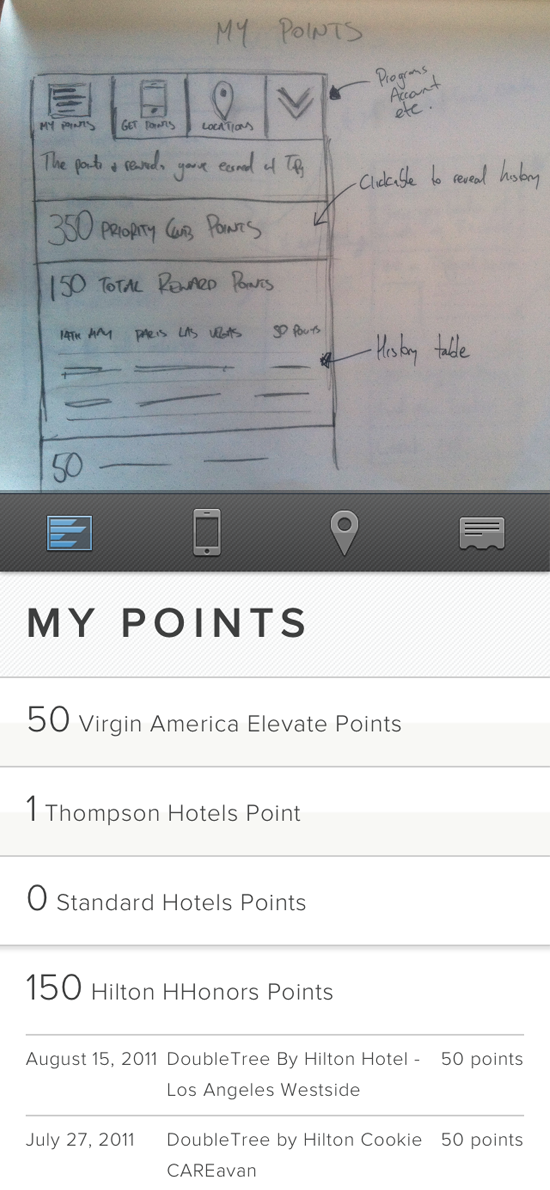 MY POINTS
Programs
Account
etc.
MY POINTS
GET POINTS
LOCATIONS
The points & rewards you've earned at
Clickable to reveal history
350 PRIORITY CLUB POINTS
150 TOTAL REWARD POINTS
14TH MAY PARIS LAS VEGAS 50 POINTS
History table
50
MY POINTS
50 Virgin America Elevate Points
1 Thompson Hotels Point
0 Standard Hotels Points
150 Hilton HHonors Points
August 15, 2011 DoubleTree By Hilton Hotel - 50 points
Los Angeles Westside
July 27, 2011 DoubleTree by Hilton Cookie 50 points
CAREavan